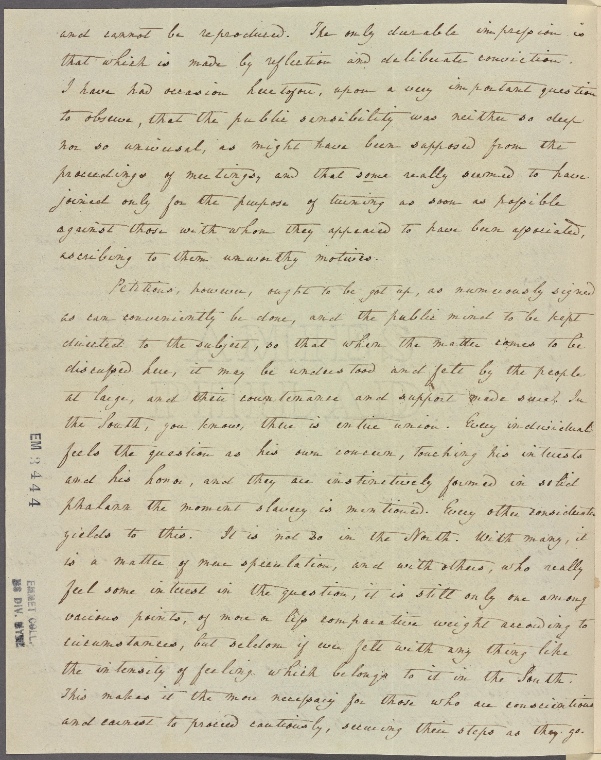 and cannot be reproduced. The only durable impression is
that which is made by reflection and deliberate conviction.
I have had occasion heretofore, upon a very important question
to observe, that the public sensibility was neither so deep
nor so universal, as might have been supposed from the
proceedings of meetings, and that some really seemed to have
joined only for the purpose of turning as soon as possible
against those with whom they appeared to have been associated,
ascribing to them unworthy motives.
Petitions, however, ought to be got up, as numerously signed
as can conveniently be done, and the public mind to be kept
directed to the subject, so that when the matter comes to be
discussed here, it may be understood and felt by the people
at large, and their countenance and support made sure. In
the South, you know, there is entire union. Every individual
feels the question as his own concern, touching his interests
and his honor, and they are instinctively formed in solid
phalanx the moment slavery is mentioned. Every other consideration
yields to this. It is not so in the North. With many, it
is a matter of mere speculation, and with others, who really
feel some interest in the question, it is still only one among
various points, of more or less comparative weight according to
circumstances, but seldom if ever felt with any thing like
the intensity of feeling which belongs to it in the South.
This makes it the more necessary for those who are conscientious
and earnest to proceed cautiously, securing their steps as they go.
EM 3444
EMMET COLL.
MS DIV. NYPL